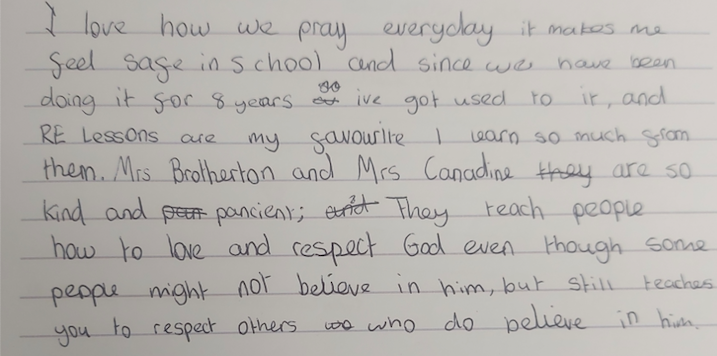 I love how we pray everyday it makes me
feel safe in school and since we have been
doing it for 8 years so ive got used to it, and
RE Lessons are my favourite I learn so much from
them. Mrs Brotherton and Mrs Canadine they are so
kind and pancient; and They teach people
how to love and respect God even though some
people might not believe in him, but still teaches
you to respect others who do believe in him.